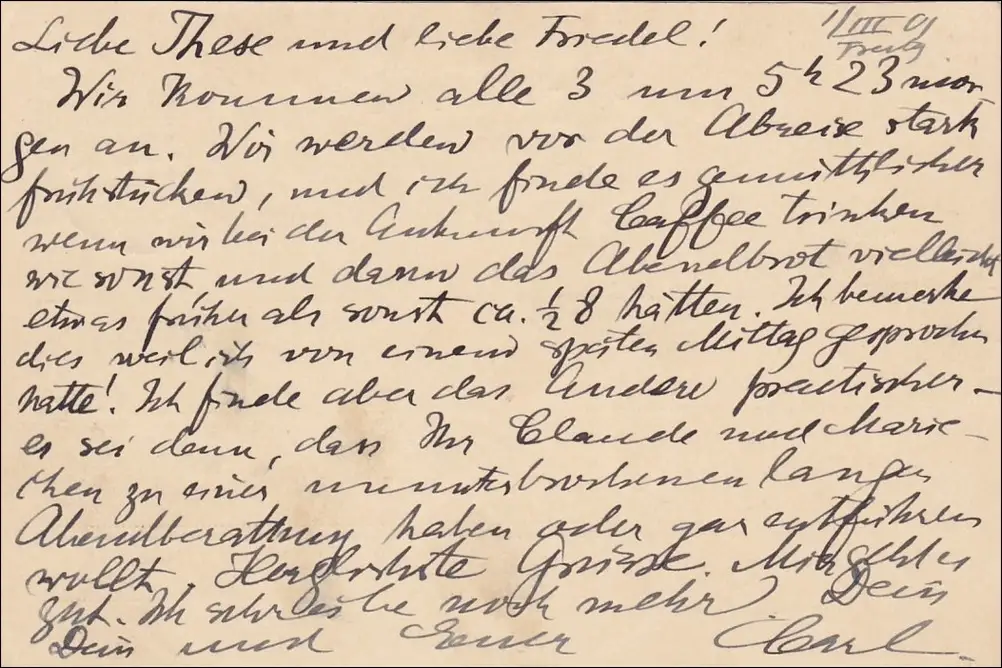 1/III 01
Freitg
Liebe These und liebe Friedel!
Wir kommen alle 3 um 5h 23 mor-
gen an. Wir werden vor der Abreise stark
frühstücken, und ich finde es gemüthlicher
wenn wir bei der Ankunft Caffee trinken
wie sonst und dann das Abendbrot vielleicht
etwas früher als sonst ca. ½ 8 hätten. Ich bemerke
dies weil ich von einem späten Mittag gesprochen
hatte! Ich finde aber das Andere practischer –
es sei denn, dass Ihr Claude und Marie-
chen zu einer ununterbrochenen langen
Abendberattung haben oder gar entführen
wollt. Herzlichste Grüsse. Mir geht es
gut. Ich schreibe noch mehr Dein
Dein und Euer Carl.